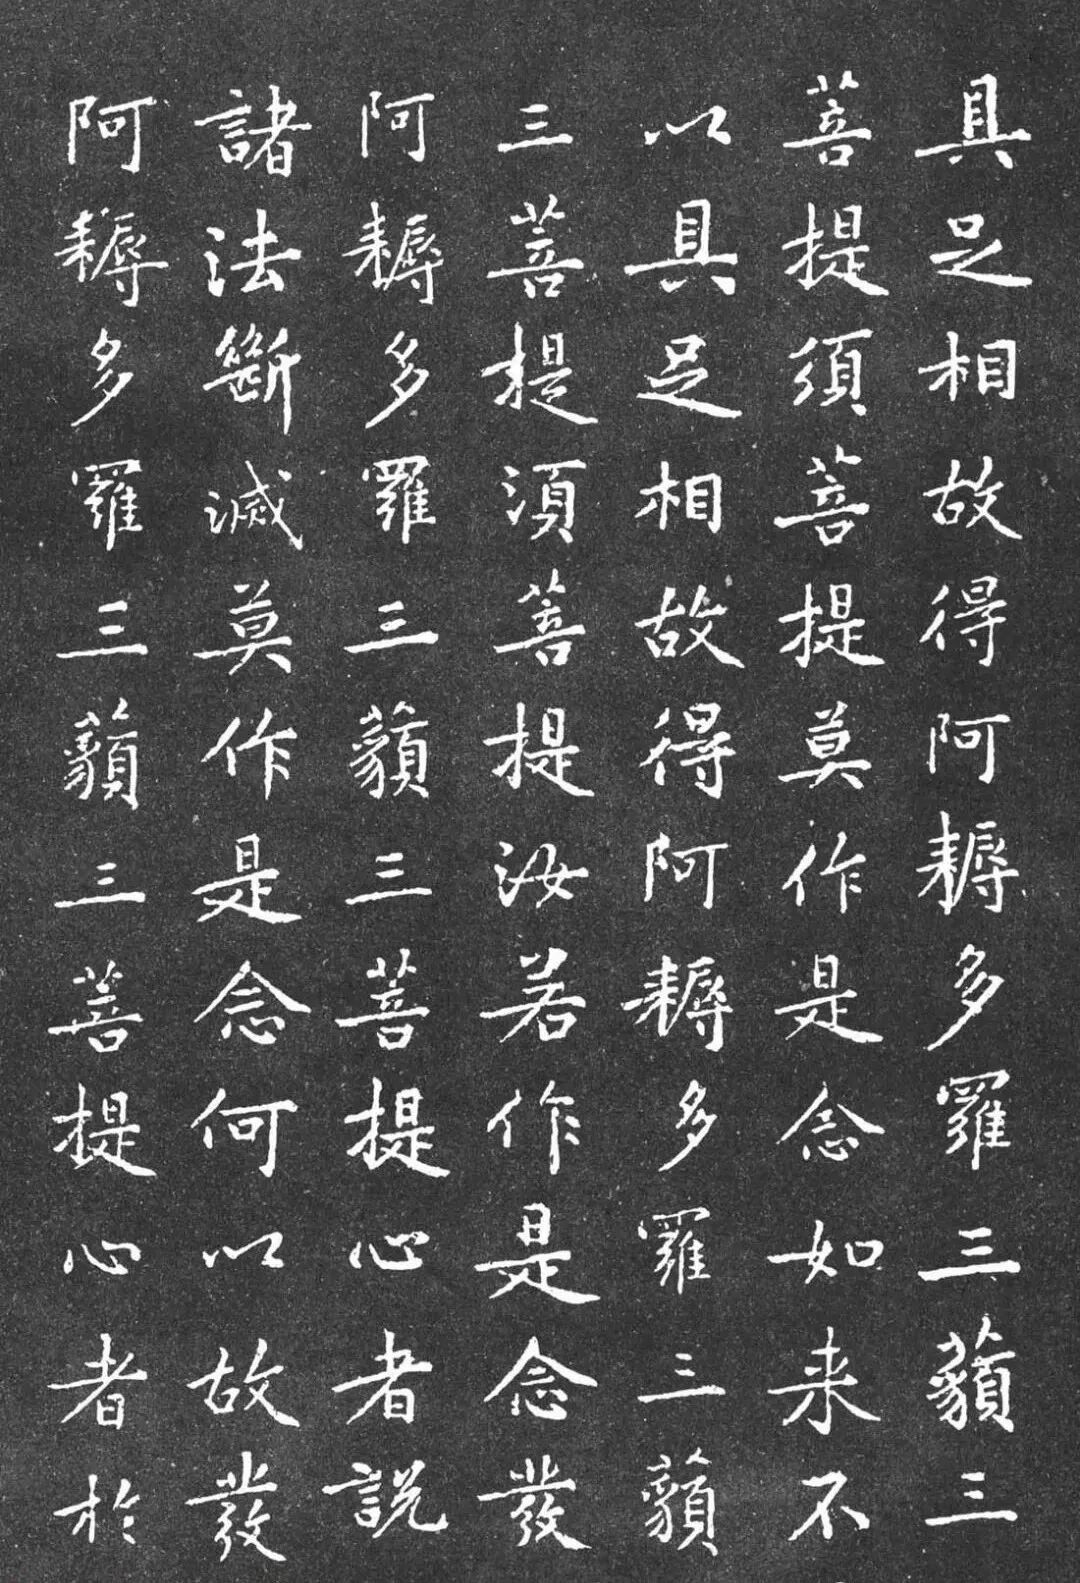 具足相故得阿耨多羅三藐三
菩提須菩提莫作是念如来不
以具足相故得阿耨多羅三藐
三菩提須菩提汝若作是念發
阿耨多羅三藐三菩提心者説
諸法斷滅莫作是念何以故發
阿耨多羅三藐三菩提心者於